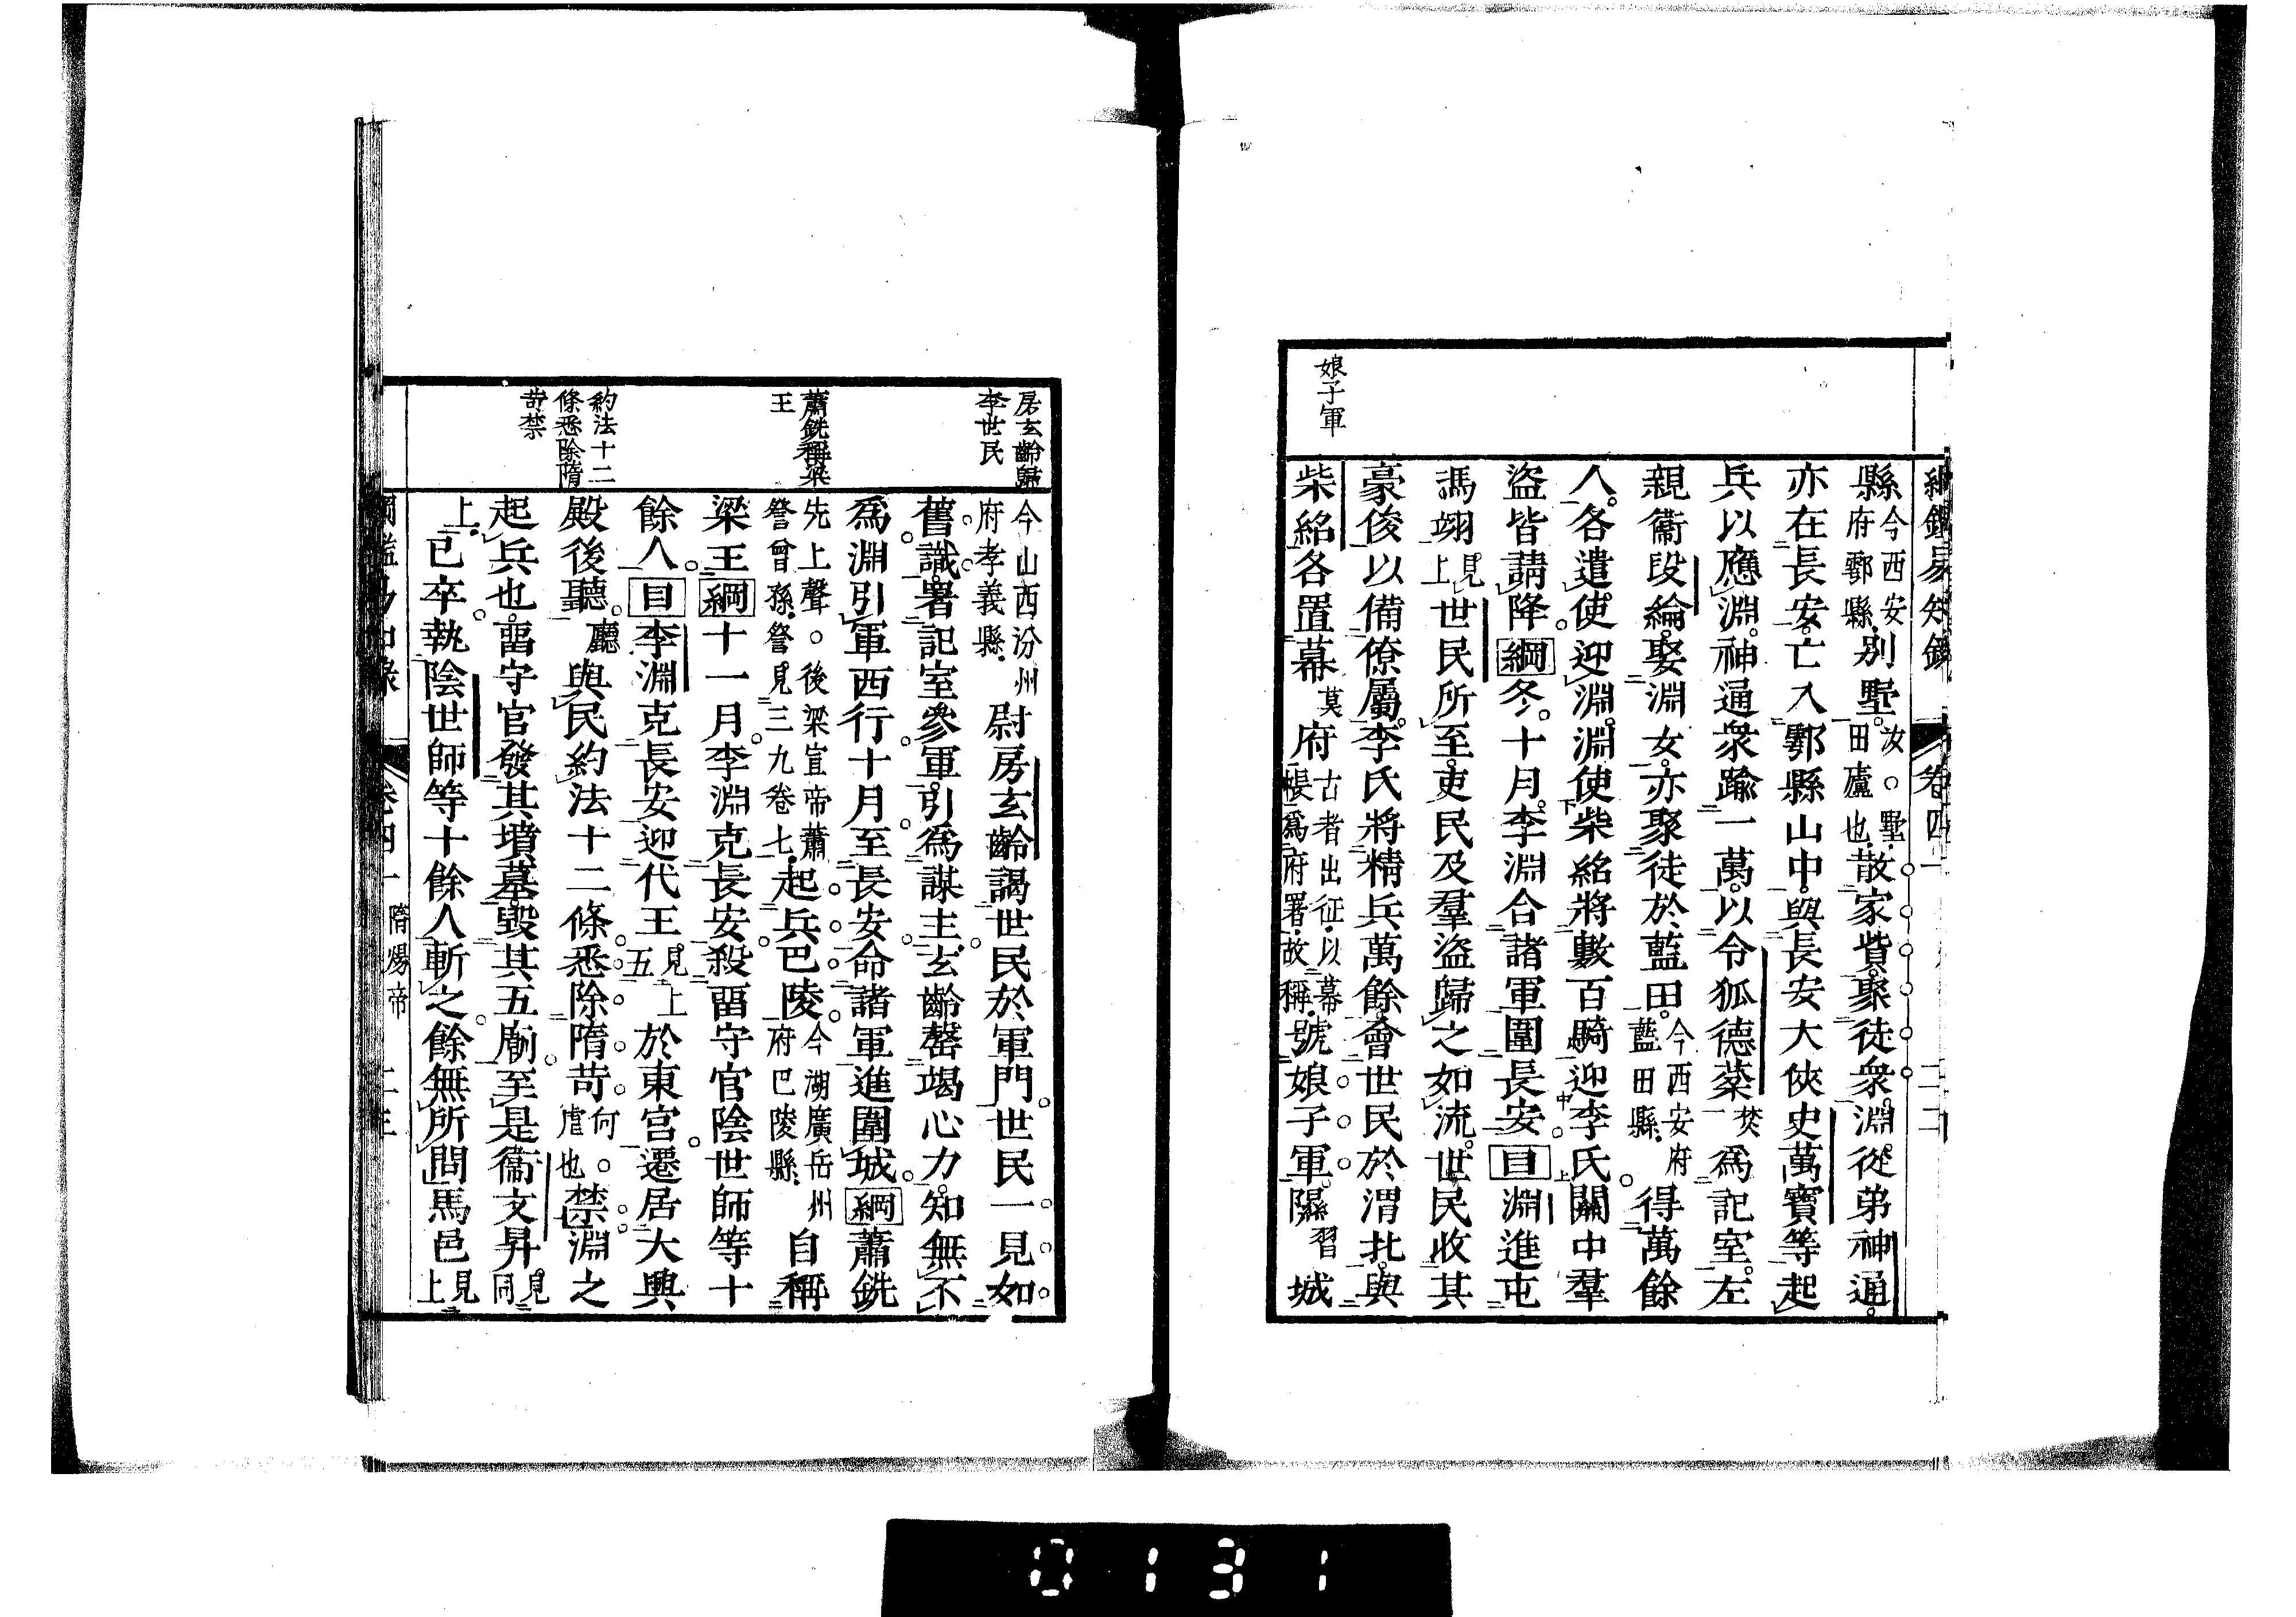 綱鑑易知錄 卷四一 二二
娘子軍
縣今西安府鄠縣別墅汝○墅田廬也散家貲聚徒衆淵從弟神通
亦在長安亡入鄠縣山中與長安大俠史萬寶等起
兵以應淵神通衆踰一萬以令狐德棻焚爲記室左
親衞段綸娶淵女亦聚徒於藍田今西安府藍田縣得萬餘
人各遣使迎淵淵使柴紹將數百騎迎李氏關中羣
盜皆請降綱冬十月李淵合諸軍圍長安目淵進屯
馮翊見上世民所至吏民及羣盜歸之如流世民收其
豪俊以備僚屬李氏將精兵萬餘會世民於渭北與
柴紹各置幕莫府古者出征以幕帳爲府署故稱號娘子軍隰習城
房玄齡歸李世民
蕭銑稱梁王
約法十二條悉除隋苛禁
今山西汾州府孝義縣尉房玄齡謁世民於軍門世民一見如
舊識署記室參軍引爲謀主玄齡罄竭心力知無不
爲淵引軍西行十月至長安命諸軍進圍城綱蕭銑
先上聲○後梁宣帝蕭詧曾孫詧見三九卷七起兵巴陵今湖廣岳州府巴陵縣自稱
梁王綱十一月李淵克長安殺畱守官陰世師等十
餘人目李淵克長安迎代王見上五於東宮遷居大興
殿後聽廳與民約法十二條悉除隋苛何○虐也禁淵之
起兵也畱守官發其墳墓毀其五廟至是衞文昇見同
上已卒執陰世師等十餘人斬之餘無所問馬邑見上
綱鑑易知錄 卷四一 隋煬帝 二三
0131